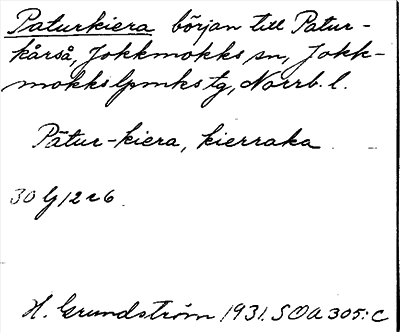 Paturkiera början till Patur-
kårså, Jokkmokks sn, Jokk-
mokks lpmks tg, Norrb. l.
Pātur-kiera, kierraka
30 G 12 e 6.
H. Grundström 1931. SOA 305:C